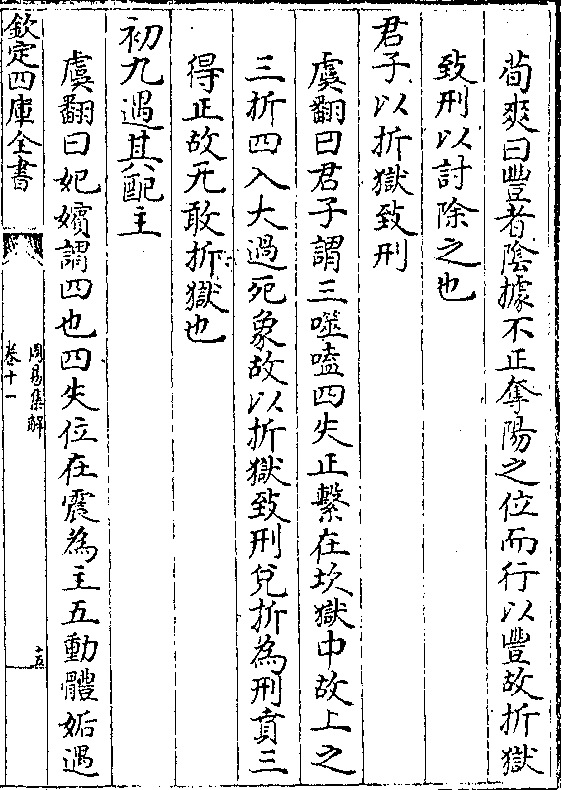 荀爽曰豐者陰據不正奪陽之位而行以豐故折獄
致刑以討除之也
君子以折獄致刑
虞翻曰君子謂三噬嗑四失正繫在坎獄中故上之
三折四入大過死象故以折獄致刑兌折為刑賁三
得正故无敢折獄也
初九遇其配主
虞翻曰妃嬪謂四也四失位在震為主五動體姤遇
欽定四庫全書
周易集解
卷十一
十五